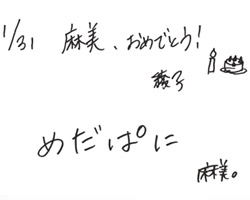 1/31 麻美、おめでとう!
綾子
めだぱに
麻美。